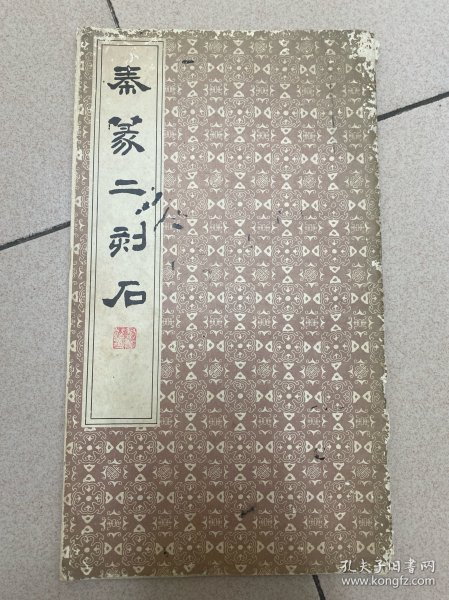 秦篆二刻石
孔夫子旧书网
www.kongfz.com